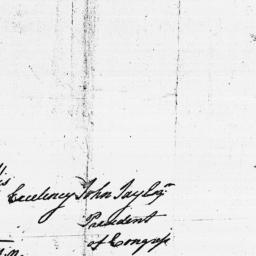 His
Excelency John Jay Esqr
President
of Congress